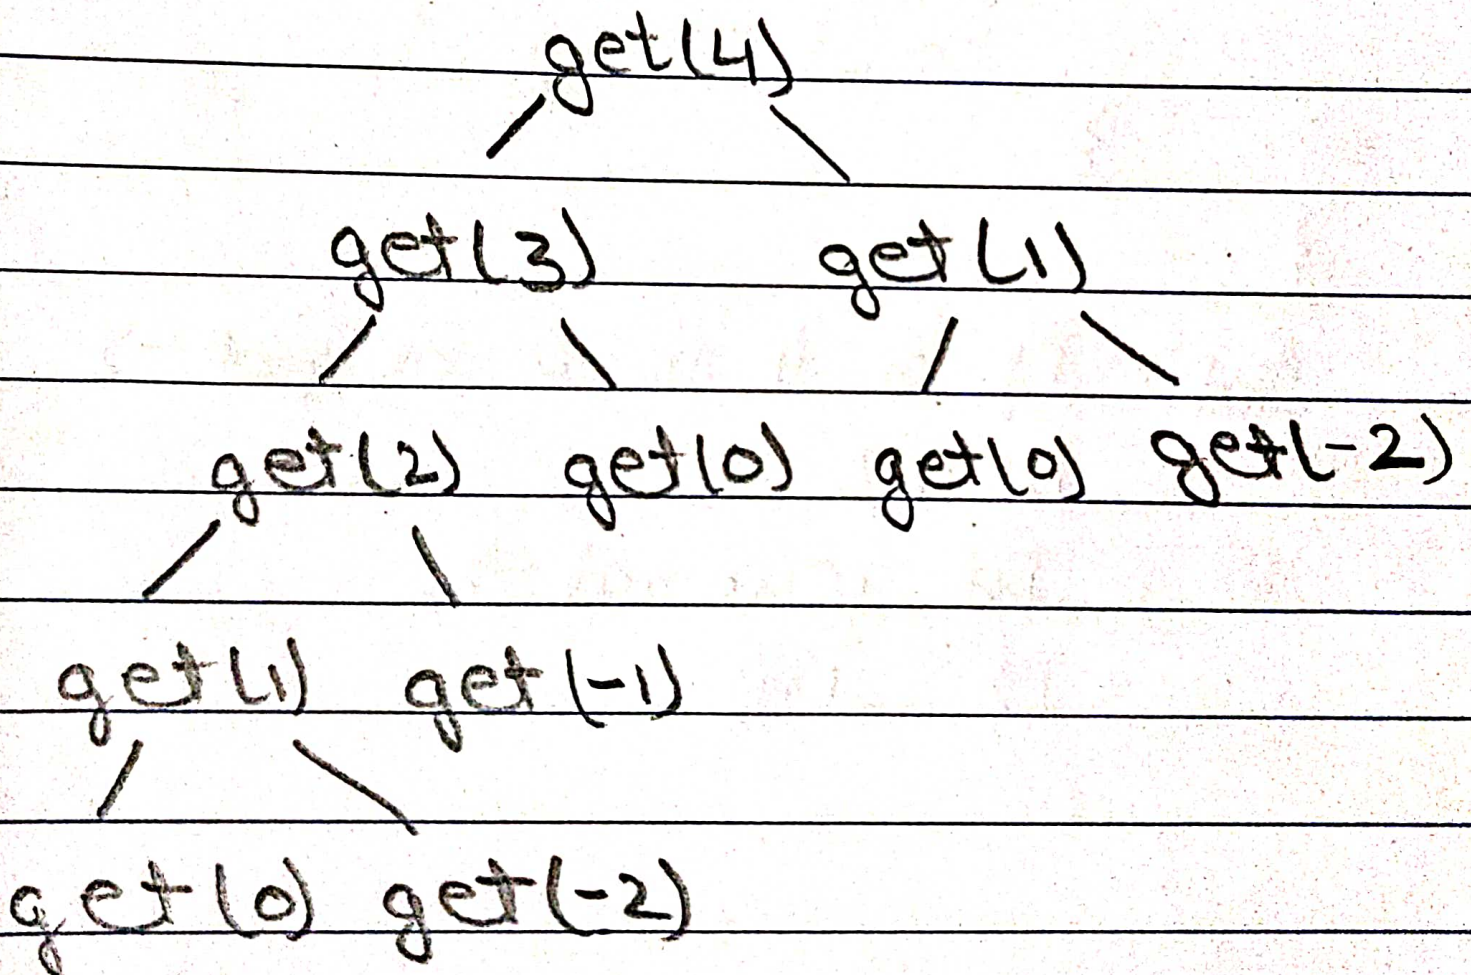 get(4)
get(3) get(1)
get(2) get(0) get(0) get(-2)
get(1) get(-1)
get(0) get(-2)